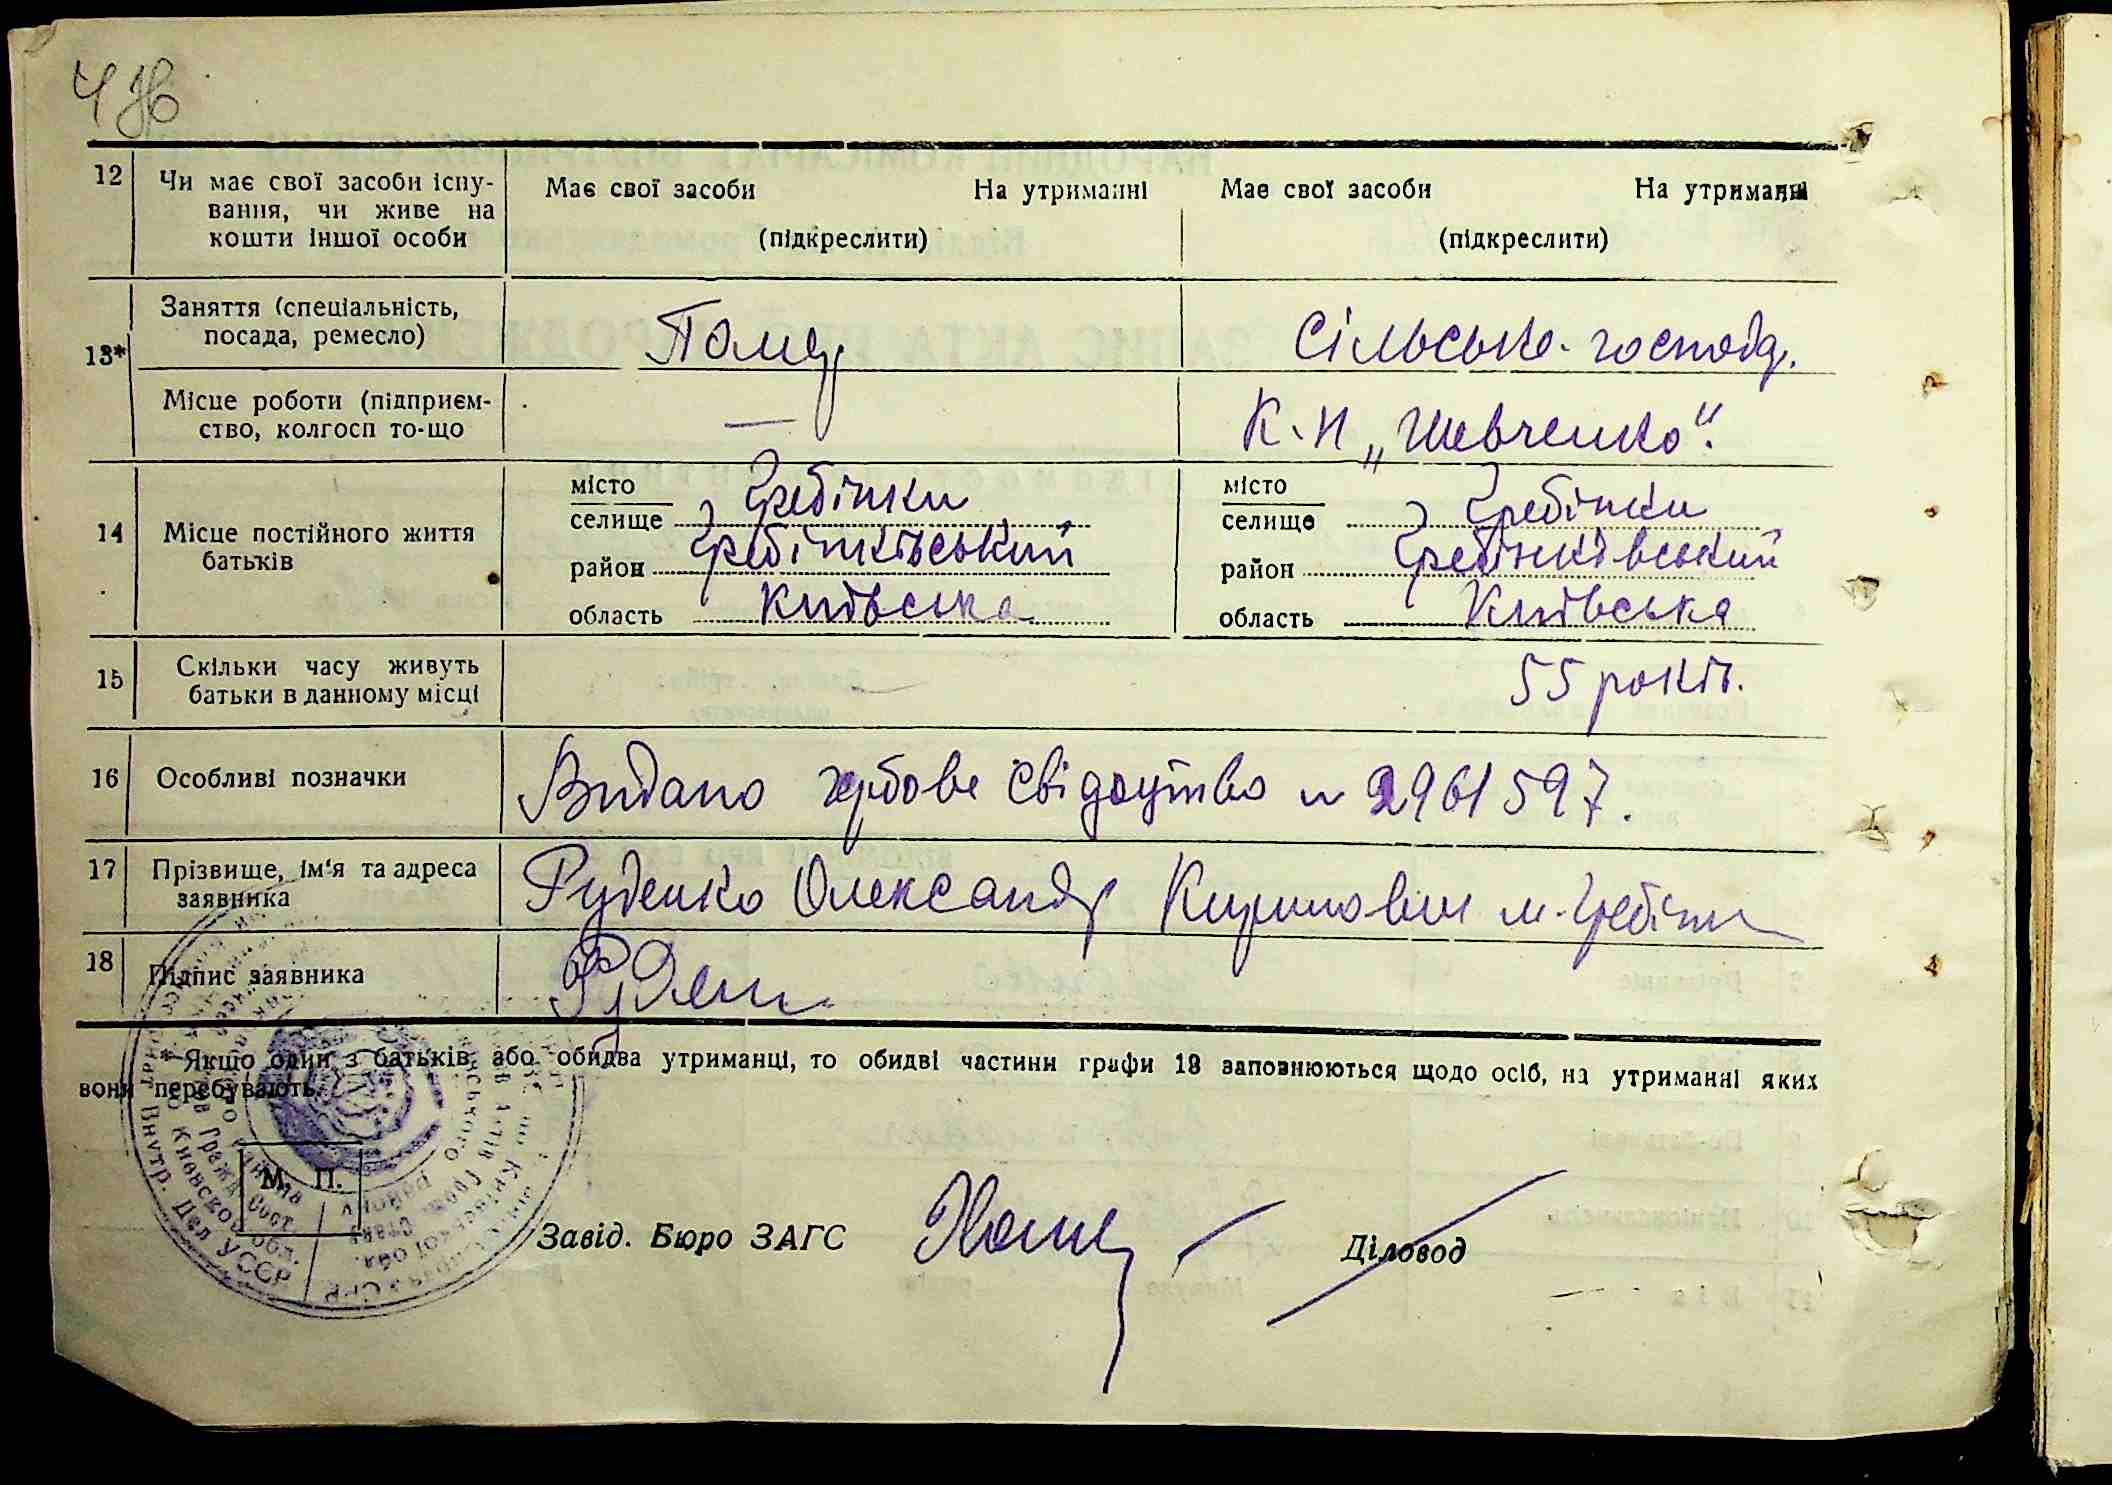 12 Чи має свої засоби існу-
вання, чи живе на
кошти іншої особи
Має свої засоби На утриманні Має свої засоби На утриманні
(підкреслити) (підкреслити)
13* Заняття (спеціальність,
посада, ремесло)
Сільсько-господ.
Місце роботи (підприєм-
ство, колгосп то-що
— К-п „Шевченко".
14 Місце постійного життя
батьків
місто місто
селище Гребінки селище Гребінки
район Гребінківський район Гребінківський
область Київська область Київська
15 Скільки часу живуть
батьки в данному місці
55 років.
16 Особливі позначки Видано гербове свідоцтво № 2961597.
17 Прізвище, ім'я та адреса
заявника
Руденко Олександр Кирилович м. Гребінки
18 Підпис заявника Руден
* Якщо один з батьків, або обидва утриманці, то обидві частини графи 13 заповнюються щодо осіб, на утриманні яких
вони перебувають.
М. П.
Внутр. Дел УССР
Киевской обл.
Завід. Бюро ЗАГС Діловод